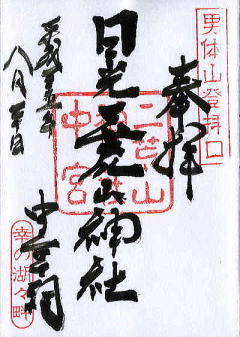 男体山登拝口
奉拝
二荒山
日光二荒山神社
中宮
中宮祠
八月
幸の湖々畔